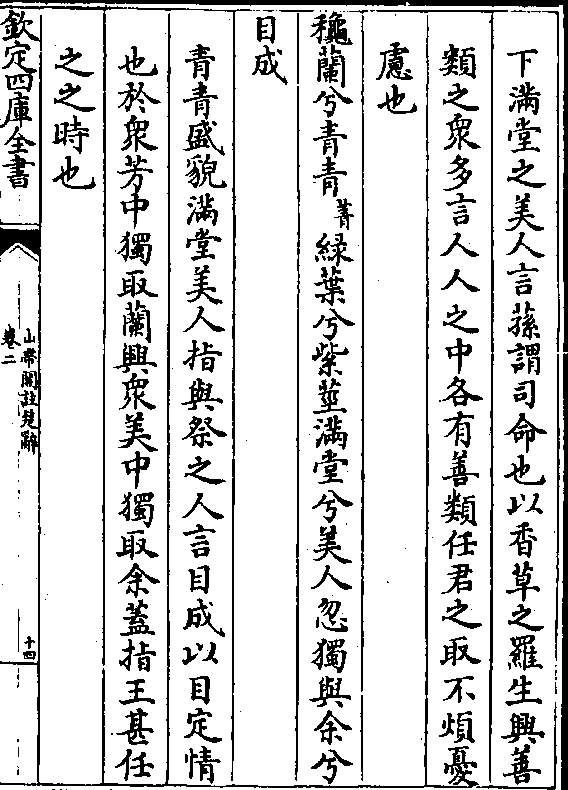 下滿堂之美人言蓀謂司命也以香草之羅生興善
類之衆多言人人之中各有善類任君之取不煩憂
慮也
穐蘭兮青青菁綠葉兮紫莖滿堂兮美人忽獨與余兮
目成
青青盛貌滿堂美人指與祭之人言目成以目定情
也於衆芳中獨取蘭興衆美中獨取余蓋指王甚任
之之時也
欽定四庫全書
山帶閣註楚辭
卷二
十四